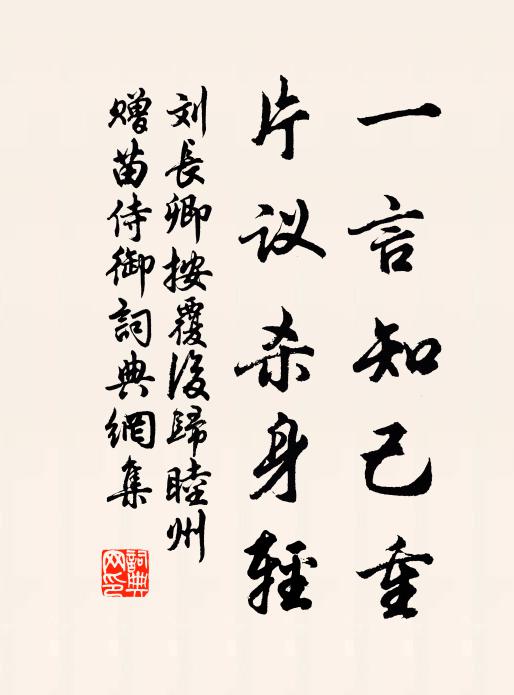 一言知己重
片议杀身轻
刘長卿按覆後歸睦州
赠苗侍御詞典網集
詞典网印